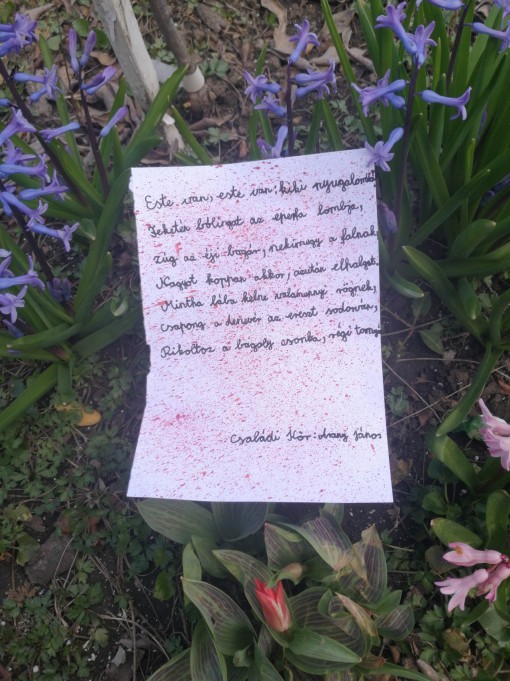 Este van, este van: kiki nyugalomba
Feketén bólingat az eperfa lombja,
Zúg az éji bogár, nekimegy a falnak,
Nagyot koppan akkor, azután elhalgat.
Mintha lába kelne valamennyi rögnek,
Csapong a denevér az ereszt sodorván,
Rikoltoz a bagoly csonka, régi
Családi Kör: Arany János